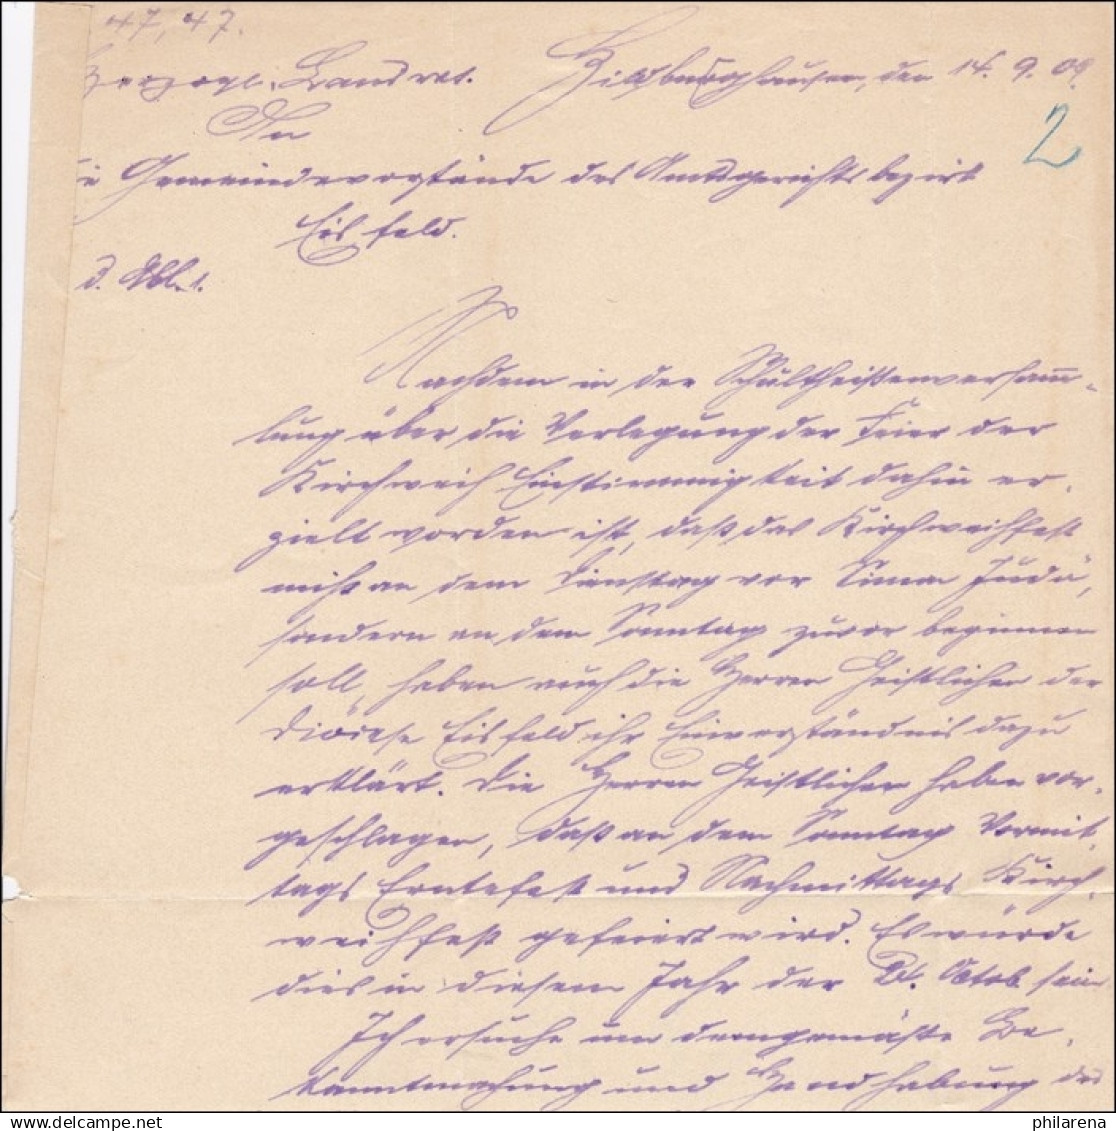 47, 47.
Herzogl. Landrat. Hildburghausen, den 14. 9. 09.
2
An
die Gemeindevorstände des Amtsgerichtsbezirk
Eisfeld.
d. Abl. 1.
Nachdem in der Schultheißenversamm-
lung über die Verlegung der Feier der
Kirchweih Einstimmigkeit dahin er-
zielt worden ist, daß das Kirchweihfest
nicht an dem Dienstag vor Simon Judä,
sondern an dem Sonntag zuvor beginnen
soll, haben auch die Herren Geistlichen der
Diöcese Eisfeld ihr Einverständnis dazu
erklärt. Die Herren Geistlichen haben vor-
geschlagen, daß an dem Sonntag Vormit-
tags Erntefest und Nachmittags Kirch-
weihfest gefeiert wird. Es würde
dies in diesem Jahr der 24. Oktob. sein
Ich ersuche um demgemäße Be-
kanntmachung und Handhabung des
philarena.com